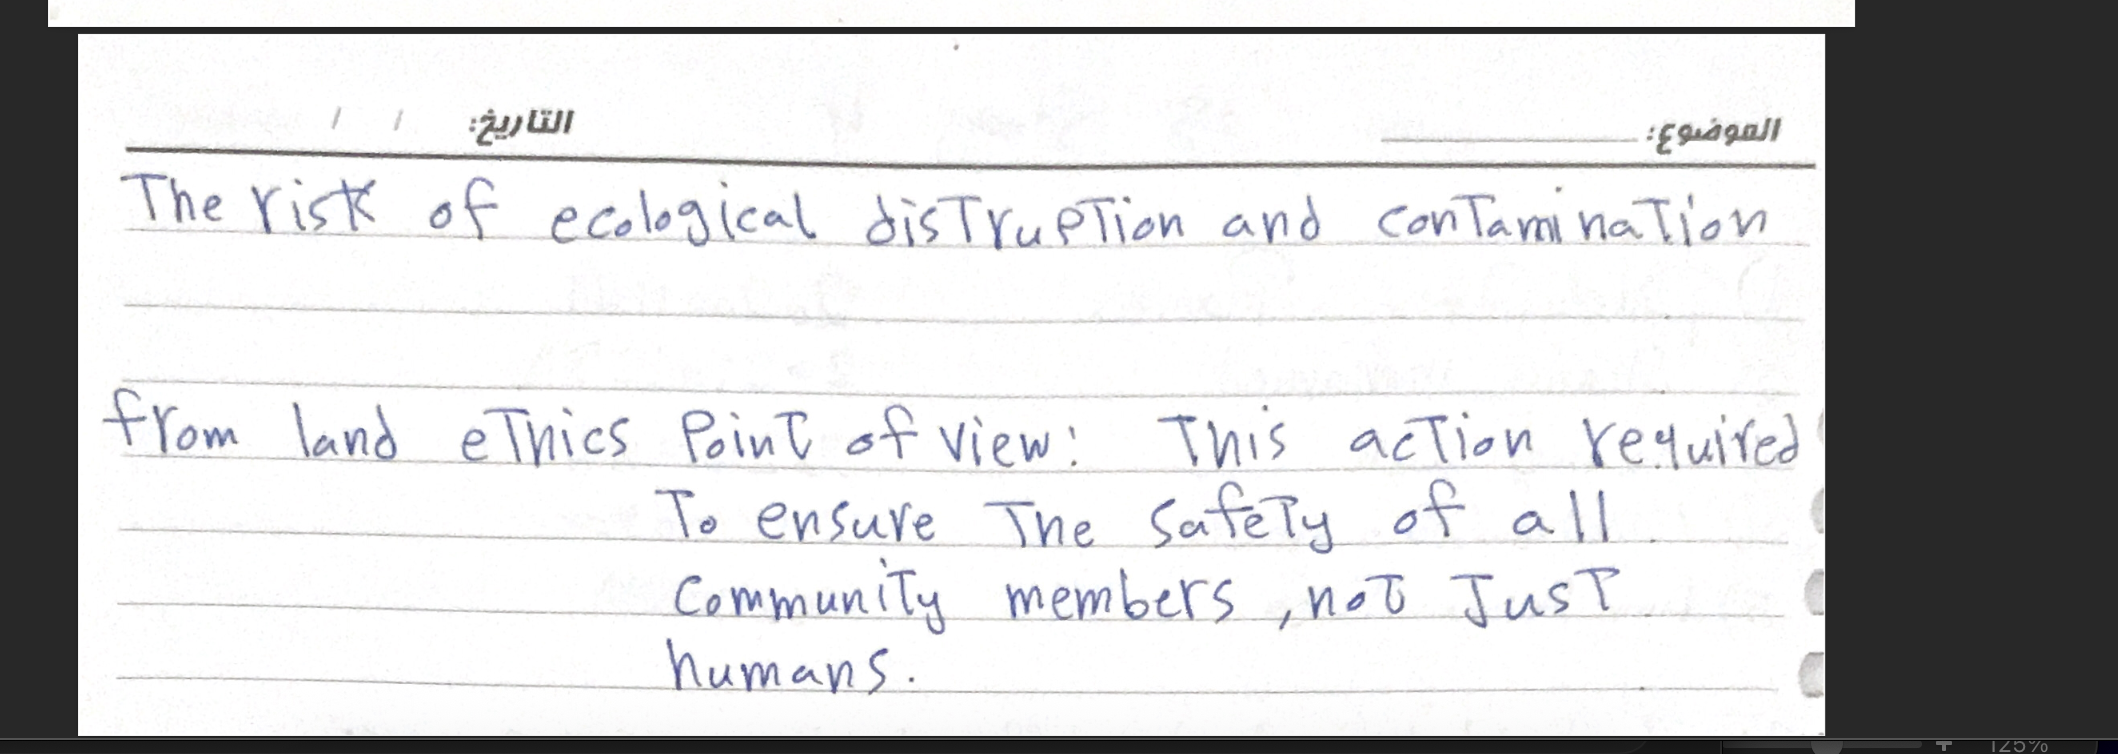 الموضوع: التاريخ: / /
The risk of ecological distruption and contamination
from land ethics point of view: This action required
To ensure The safety of all
community members, not Just
humans.
125%